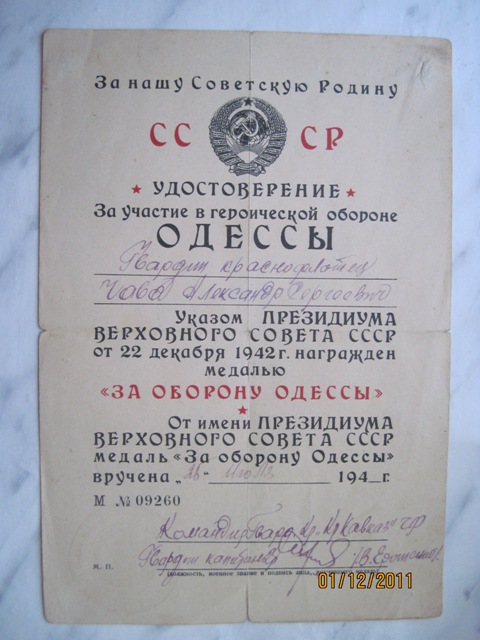 За нашу Советскую Родину
СС СР
УДОСТОВЕРЕНИЕ
За участие в героической обороне
ОДЕССЫ
Гвардии краснофлотец
Чава Александр Сергеевич
Указом ПРЕЗИДИУМА
ВЕРХОВНОГО СОВЕТА СССР
от 22 декабря 1942 г. награжден
медалью
«ЗА ОБОРОНУ ОДЕССЫ»
От имени ПРЕЗИДИУМА
ВЕРХОВНОГО СОВЕТА СССР
медаль «За оборону Одессы»
вручена „26" 194 г.
М № 09260
Командир Гвард. Кр. „Кр. Кавказ" ЧФ
Гвардии капитан
М. П.
(должность, военное звание и подпись лица,
01/12/2011